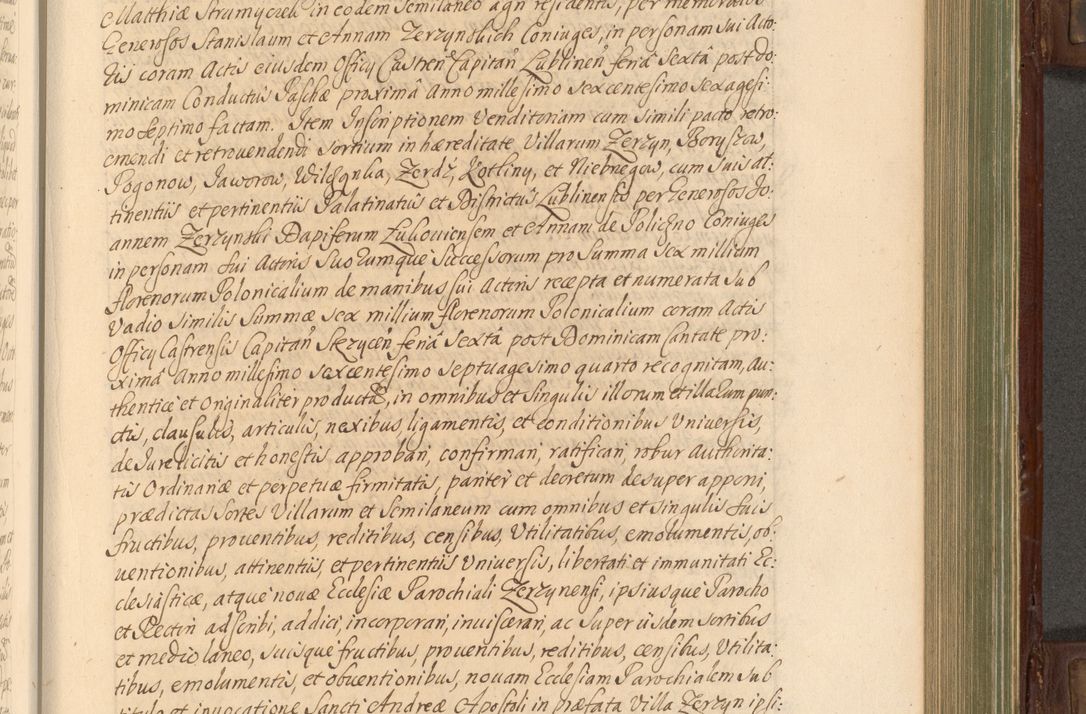 Matthiæ Strumyczek in eodem Semilaneo agri residentis, per memoratos
Generosos Stanislaum et Annam Zerzynskich Coniuges, in personam sui Acto:
ris coram Actis eiusdem Officij Castren Capitan Lublinen feriâ Sextâ post do:
minicam Conductus Paschæ proximâ Anno millesimo sexcentesimo sexagesi:
mo septimo factam. Item Inscriptionem Venditoriam cum simili pacto retro:
emendi et retrovendendi sortium in hæreditate Villarum Zerzyn, Boryszow,
Pogonow, Jaworow, Zerdź, Kotliny, et Niebnegow, cum suis at:
tinentiis et pertinentiis Palatinatus et Districtus Lublinensis per Generosos Jo:
annem Zerzynski Dapiferum Lukoviensem et Annam de Policzno Coniuges
in personam sui Actoris suorumque Successorum pro Summa sex millium
florenorum Polonicalium de manibus sui Actoris recepta et numerata sub
vadio similis summæ sex millium florenorum Polonicalium coram Actis
Officij Castrensis Capitan Stezycen feriâ sextâ post Dominicam Cantate pro:
ximâ Anno millesimo sexcentesimo septuagesimo quarto recognitam, au:
thenticè et originaliter productas, in omnibus et singulis illorum et illarum pun:
ctis, clausulis, articulis, nexibus, ligamentis, et conditionibus universis,
de Jure licitis et honestis approbari, confirmari, ratificari, robur authorita:
tis Ordinariæ et perpetuæ firmitatis, pariter et decretum desuper apponi,
prædictas Sortes Villarum et Semilaneum cum omnibus et singulis suis
fructibus, proventibus, reditibus, censibus, Utilitatibus, emolumentis, ob:
ventionibus, attinentiis, et pertinentiis Universis, libertati et immunitati Ec:
clesiasticæ, atque novæ Ecclesiæ Parochiali Zerzynensi, ipsiusque Parocho
et Rectori adscribi, addici, incorporari, inviscerari, ac super iisdem sortibus
et medio laneo, suisque fructibus, proventibus, reditibus, censibus, Utilita:
tibus, emolumentis, et obventionibus, novam Ecclesiam Parochialem sub
titulo et invocatione Sancti Andreæ Apostoli in præfata Villa Zerzyn ipsi: